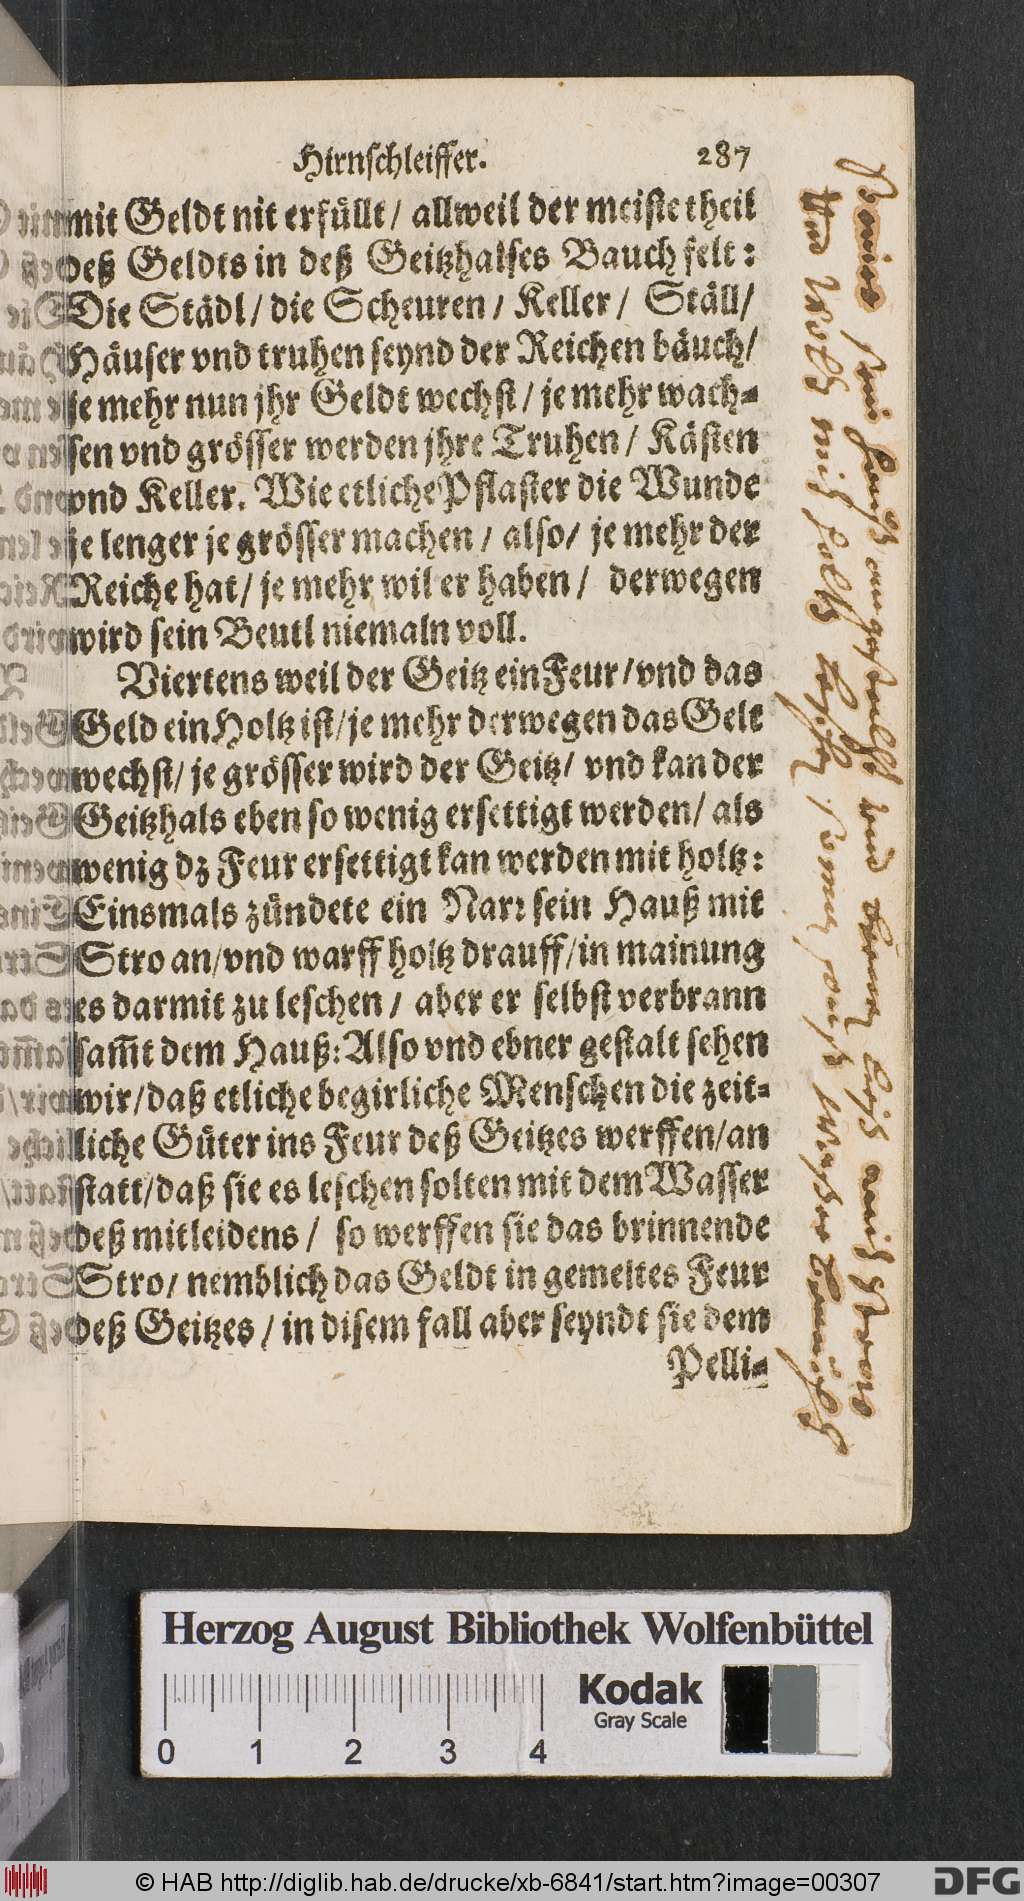 Hirnschleiffer. 287
mit Geldt nit erfüllt / allweil der meiste theil
deß Geldts in deß Geitzhalses Bauch felt:
Die Städl / die Scheuren / Keller / Ställ /
Häuser vnd truhen seynd der Reichen bäuch /
je mehr nun jhr Geldt wechst / je mehr wach-
sen vnd grösser werden jhre Truhen / Kästen
vnd Keller. Wie etliche Pflaster die Wunde
je lenger je grösser machen / also / je mehr der
Reiche hat / je mehr wil er haben / derwegen
wird sein Beutl niemaln voll.
Viertens weil der Geitz ein Feur / vnd das
Geld ein Holtz ist / je mehr derwegen das Gelt
wechst / je grösser wird der Geitz / vnd kan der
Geitzhals eben so wenig ersettigt werden / als
wenig dz Feur ersettigt kan werden mit holtz:
Einsmals zündete ein Narr sein Hauß mit
Stro an / vnd warff holtz drauff / in mainung
es darmit zu leschen / aber er selbst verbrann
sam̃t dem Hauß: Also vnd ebner gestalt sehen
wir / daß etliche begirliche Menschen die zeit-
liche Güter ins Feur deß Geitzes werffen / an
statt / daß sie es leschen solten mit dem Wasser
deß mitleidens / so werffen sie das brinnende
Stro / nemblich das Geldt in gemeltes Feur
deß Geitzes / in disem fall aber seyndt sie dem
Pelli-
Herzog August Bibliothek Wolfenbüttel
Kodak
Gray Scale
0 1 2 3 4
© HAB http://diglib.hab.de/drucke/xb-6841/start.htm?image=00307
DFG